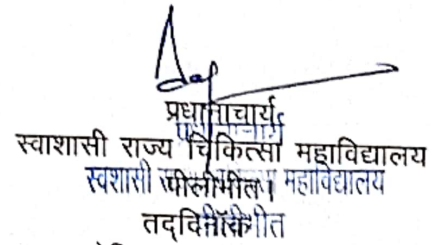 प्रधानाचार्य
स्वाशासी राज्य चिकित्सा महाविद्यालय
स्वशासी महाविद्यालय
पीलीभीत।
तद्दिनॉक